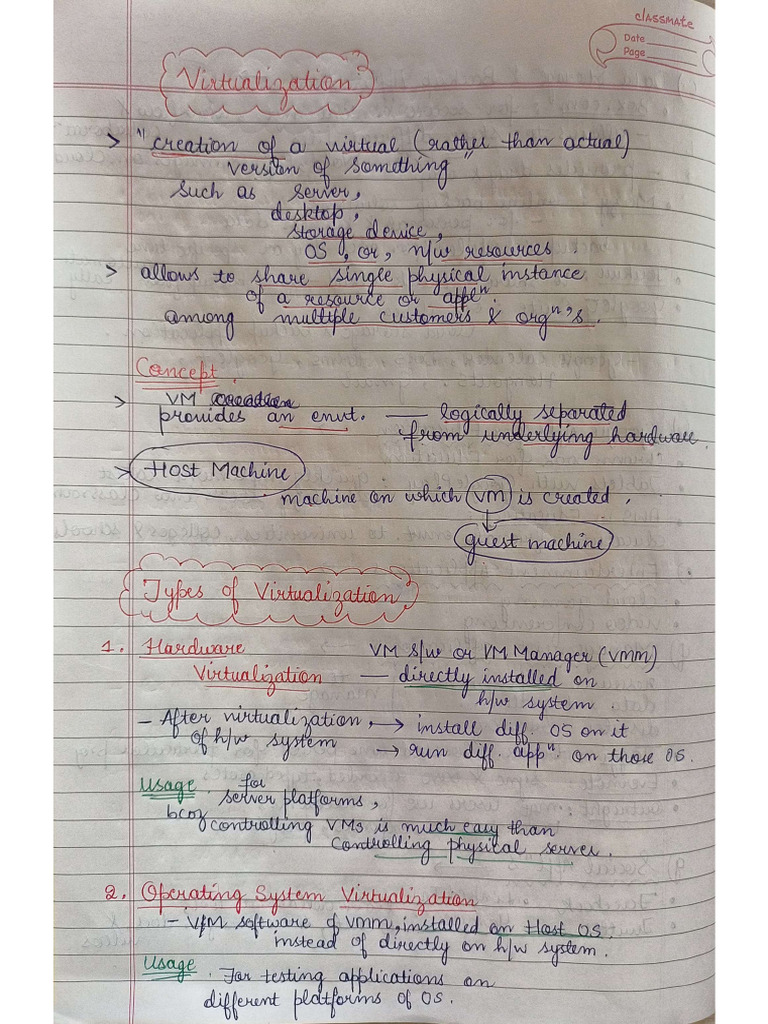 classmate
Date
Page
Virtualization
> "creation of a virtual (rather than actual)
version of something"
such as server,
desktop,
storage device,
OS, or, n/w resources.
> allows to share single physical instance
of a resource or appln.
among multiple customers & orgn's.
Concept.
> VM creation
provides an envt. — logically separated
from underlying hardware.
> Host Machine
machine on which VM is created.
guest machine
Types of Virtualization
1. Hardware VM s/w or VM Manager (VMM)
Virtualization — directly installed on
h/w system.
- After virtualization, → install diff. OS on it
of h/w system → run diff. appn. on those OS.
Usage. for
server platforms,
bcoz controlling VMs is much easy than
controlling physical server.
2. Operating System Virtualization
- VM software of VMM, installed on Host OS.
instead of directly on h/w system.
Usage. For testing applications on
different platforms of OS.